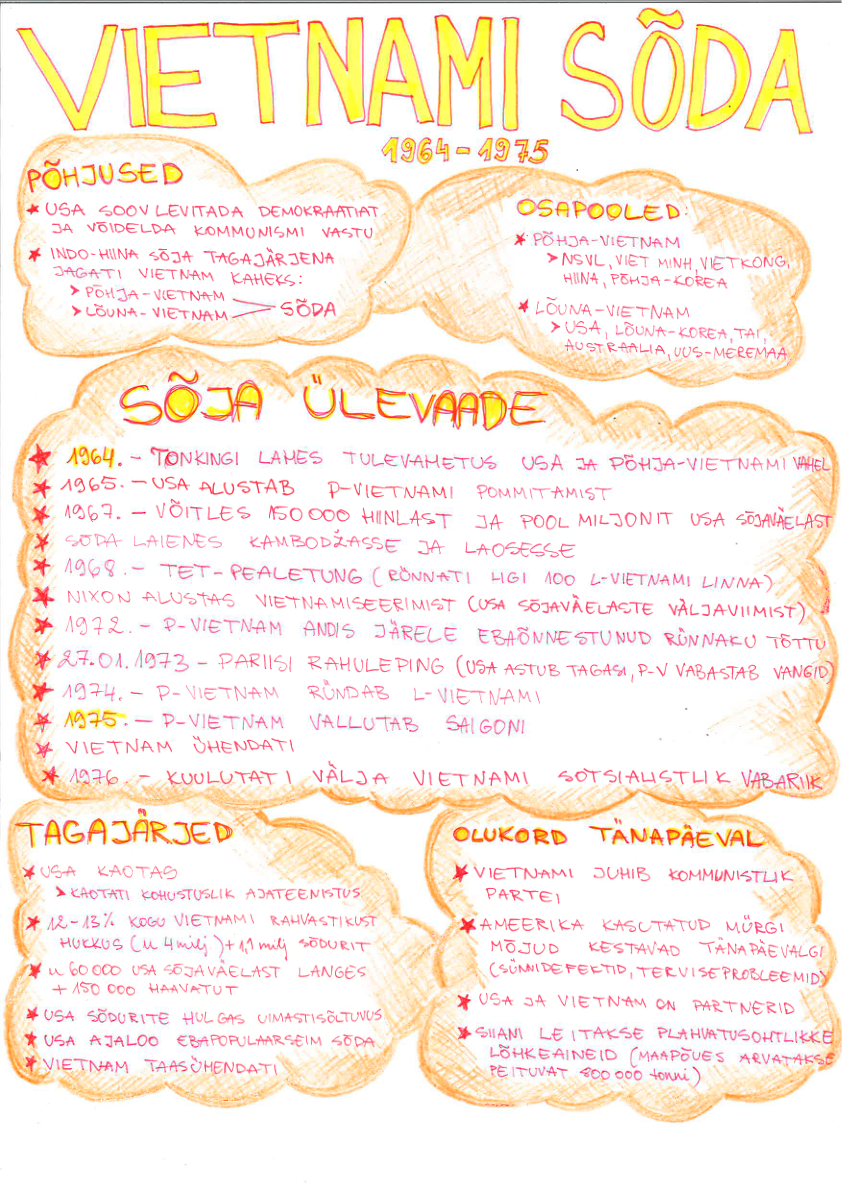 VIETNAMI SÕDA
1964-1975
PÕHJUSED
★ USA SOOV LEVITADA DEMOKRAATIAT
JA VÕIDELDA KOMMUNISMI VASTU
★ INDO-HIINA SÕJA TAGAJÄRJENA
JAGATI VIETNAM KAHEKS:
> PÕHJA-VIETNAM
> LÕUNA-VIETNAM
SÕDA
OSAPOOLED:
★ PÕHJA-VIETNAM
> NSVL, VIET MINH, VIETKONG,
HIINA, PÕHJA-KOREA
★ LÕUNA-VIETNAM
> USA, LÕUNA-KOREA, TAI,
AUSTRAALIA, UUS-MEREMAA
SÕJA ÜLEVAADE
★ 1964. - TONKINGI LAHES TULEVAHETUS USA JA PÕHJA-VIETNAMI VAHEL
★ 1965. - USA ALUSTAB P-VIETNAMI POMMITAMIST
★ 1967. - VÕITLES 150 000 HIINLAST JA POOL MILJONIT USA SÕJAVÄELAST
★ SÕDA LAIENES KAMBODŽASSE JA LAOSESSE
★ 1968. - TET-PEALETUNG (RÜNNATI LIGI 100 L-VIETNAMI LINNA)
★ NIXON ALUSTAS VIETNAMISEERIMIST (USA SÕJAVÄELASTE VÄLJAVIIMIST)
★ 1972. - P-VIETNAM ANDIS JÄRELE EBAÕNNESTUNUD RÜNNAKU TÕTTU
★ 27.01.1973 - PARIISI RAHULEPING (USA ASTUB TAGASI, P-V VABASTAB VANGID)
★ 1974. - P-VIETNAM RÜNDAB L-VIETNAMI
★ 1975. - P-VIETNAM VALLUTAB SAIGONI
★ VIETNAM ÜHENDATI
★ 1976. - KUULUTATI VÄLJA VIETNAMI SOTSIALISTLIK VABARIIK
TAGAJÄRJED
★ USA KAOTAS
> KAOTATI KOHUSTUSLIK AJATEENISTUS
★ 12-13% KOGU VIETNAMI RAHVASTIKUST
HUKKUS (u 4 milj) + 1,1 milj SÕDURIT
★ u 60 000 USA SÕJAVÄELAST LANGES
+ 150 000 HAAVATUT
★ USA SÕDURITE HULGAS UIMASTISÕLTUVUS
★ USA AJALOO EBAPOPULAARSEIM SÕDA
★ VIETNAM TAASÜHENDATI
OLUKORD TÄNAPÄEVAL
★ VIETNAMI JUHIB KOMMUNISTLIK
PARTEI
★ AMEERIKA KASUTATUD MÜRGI
MÕJUD KESTAVAD TÄNAPÄEVALGI
(SÜNNIDEFEKTID, TERVISEPROBLEEMID)
★ USA JA VIETNAM ON PARTNERID
★ SIIANI LEITAKSE PLAHVATUSOHTLIKKE
LÕHKEAINEID (MAAPÕUES ARVATAKSE
PEITUVAT 800 000 tonni)